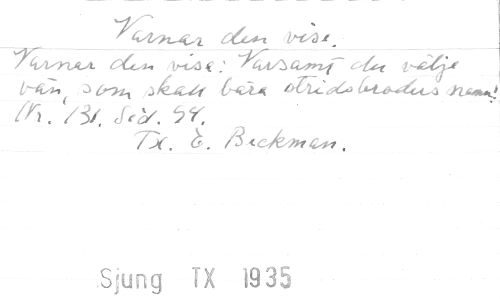 Varnar den vise.
Varnar den vise: Varsamt du välje
vän, som skall bära stridsbroders namn!
Nr. 131. Sid. 94.
Tx. E. Beckman.
Sjung TX 1935